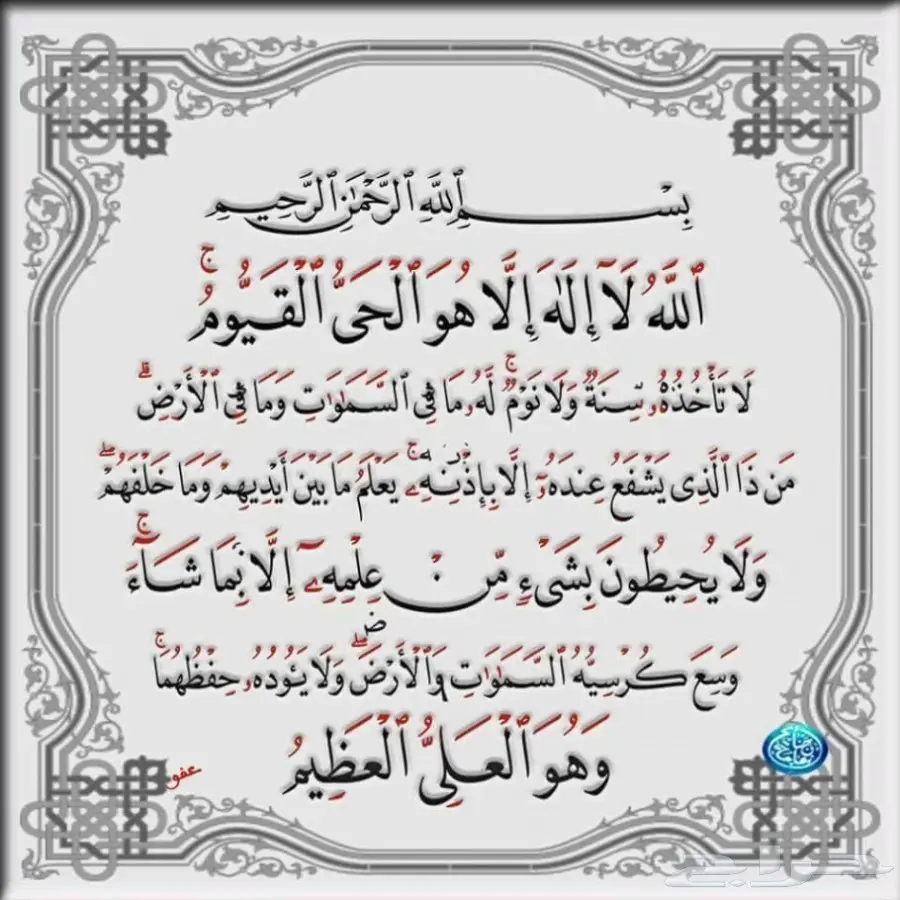 بِسْمِ ٱللَّهِ ٱلرَّحْمَٰنِ ٱلرَّحِيمِ
ٱللَّهُ لَآ إِلَٰهَ إِلَّا هُوَ ٱلْحَىُّ ٱلْقَيُّومُ ۚ
لَا تَأْخُذُهُۥ سِنَةٌ وَلَا نَوْمٌ ۚ لَّهُۥ مَا فِى ٱلسَّمَٰوَٰتِ وَمَا فِى ٱلْأَرْضِ ۗ
مَن ذَا ٱلَّذِى يَشْفَعُ عِندَهُۥٓ إِلَّا بِإِذْنِهِۦ ۚ يَعْلَمُ مَا بَيْنَ أَيْدِيهِمْ وَمَا خَلْفَهُمْ ۖ
وَلَا يُحِيطُونَ بِشَىْءٍ مِّنْ عِلْمِهِۦٓ إِلَّا بِمَا شَآءَ ۚ
وَسِعَ كُرْسِيُّهُ ٱلسَّمَٰوَٰتِ وَٱلْأَرْضَ ۖ وَلَا يَـُٔودُهُۥ حِفْظُهُمَا ۚ
وَهُوَ ٱلْعَلِىُّ ٱلْعَظِيمُ
عفو
حراج